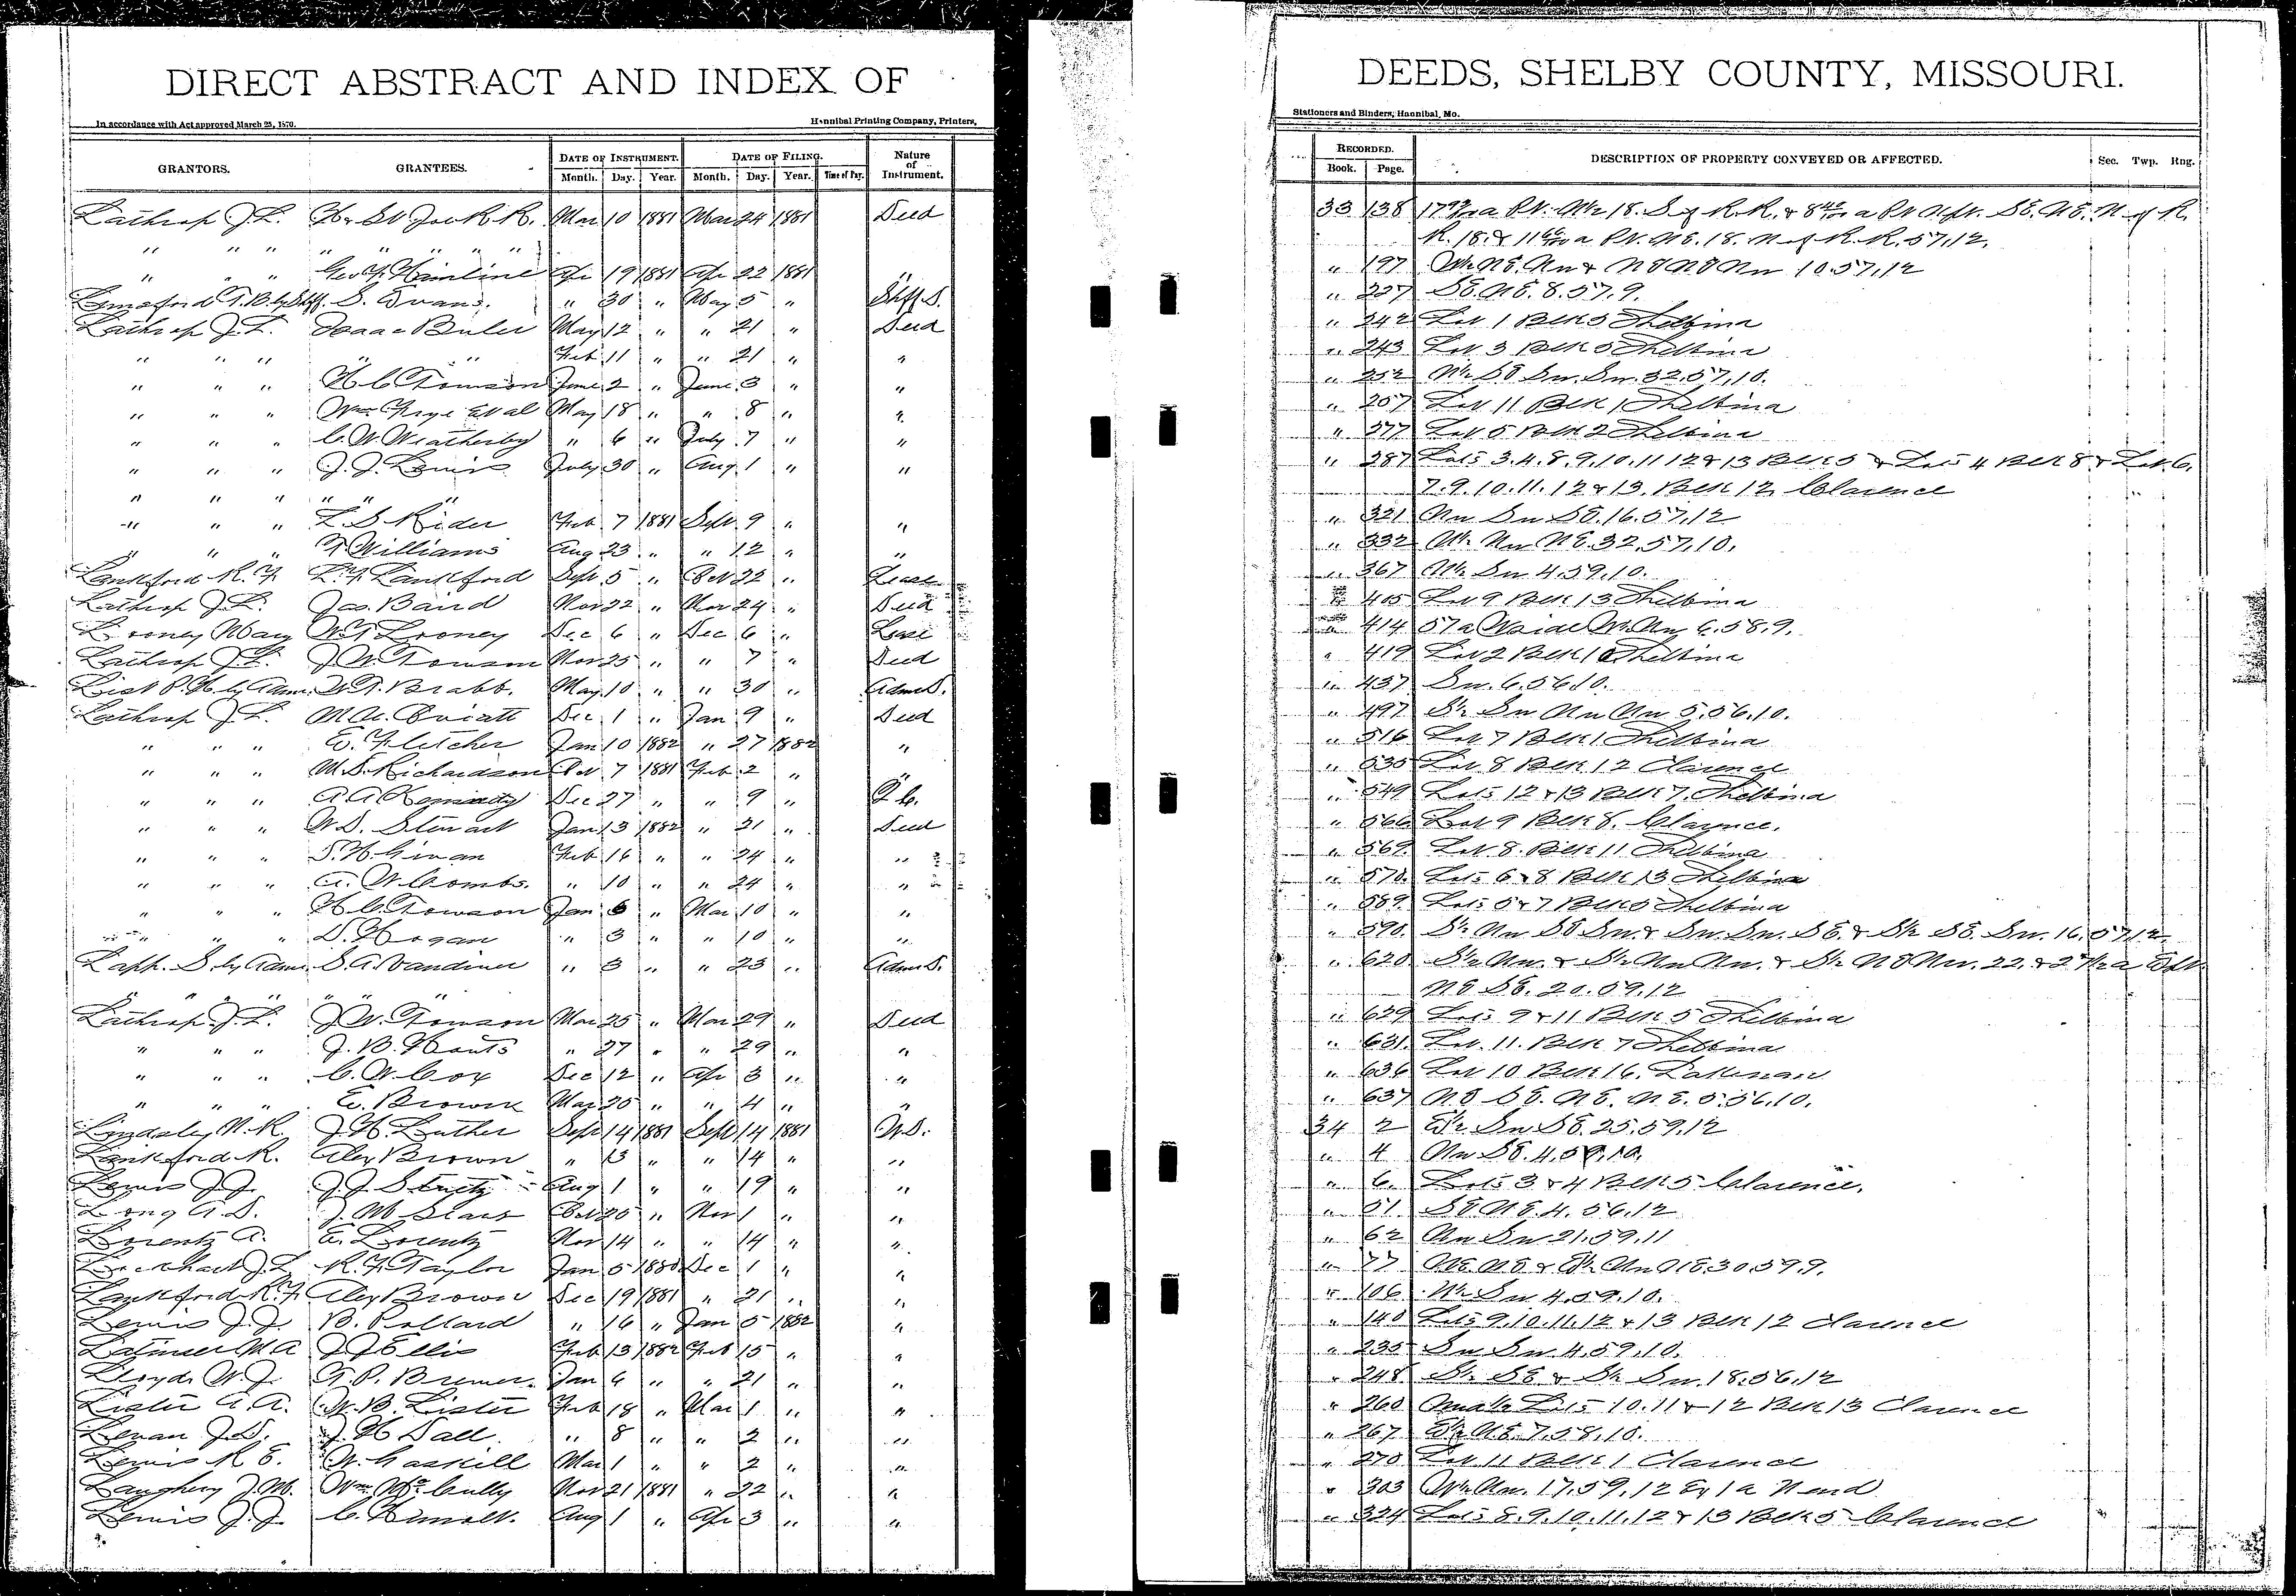 DIRECT ABSTRACT AND INDEX OF
In accordance with Act approved March 25, 1870.
Hannibal Printing Company, Printers,
GRANTORS. GRANTEES. DATE OF INSTRUMENT. DATE OF FILING. Nature of Instrument.
Month. Day. Year. Month. Day. Year. Time of Day.
Lathrop J. L. H & St Joe R R. Mar 10 1881 Mar 24 1881 Deed
" " " " " " " "
" " " Geo. Y. Hainline Apr 19 1881 Apr 22 1881 "
T. B. by Shff. S. Evans. " 30 " May 5 " Shff D.
Lathrop J. L. Isaac Buler May 12 " " 21 " Deed
" " " " " Feb 11 " " 21 " "
" " " H. C. Towson June 2 " June 3 " "
" " " Wm Frye et al May 18 " " 8 " "
" " " C. W. Weatherby " 6 " July 7 " "
" " " J. J. Lewis July 30 " Aug 1 " "
" " " " " "
" " " L. S. Rider Feb 7 1881 Sept 9 " "
" " " T. Williams Aug 23 " " 12 " "
Lankford R. Y. L. Y. Lankford Sept 5 " Oct 22 " Lease
Lathrop J. L. Jas. Baird Nov 22 " Nov 24 " Deed
Looney May W. T. Looney Dec 6 " Dec 6 " Lease
Lathrop J. L. J. W. Towson Nov 25 " " 7 " Deed
List P. H. by Adm. W. T. Brabb. May 10 " " 30 " Adm D.
Lathrop J. L. M. A. Oviatt Dec 1 " Jan 9 " Deed
" " " E. Fletcher Jan 10 1882 " 27 1882 "
" " " M. D. Richardson Oct 7 1881 Feb 2 " "
" " " A. A. Dec 27 " " 9 " Q. C.
" " " W. D. Stewart Jan 13 1882 " 21 " Deed
" " " S. H. Givan Feb 16 " " 24 " "
" " " A. W. Combs. " 10 " " 24 " "
" " " H. C. Towson Jan 6 " Mar 10 " "
" " " D. Hogan " 3 " " 10 " "
Lapp. S. by Adm. S. A. Vandiver " 3 " " 23 " Adm D.
" " " " " "
Lathrop J. L. J. W. Towson Mar 25 " Mar 29 " Deed
" " " J. B. Houts " 27 " " 29 " "
" " " C. W. Cox Dec 12 " Apr 3 " "
" " " E. Brown Mar 20 " " 4 " "
Lindsley N. R. J. H. Luther Sept 14 1881 Sept 14 1881 W. D.
Lankford R. Alex Brown " 13 " " 14 " "
Lewis J. J. J. J. Aug 1 " " 19 " "
Long A. D. J. M. Sears Oct 25 " Nov 1 " "
Lorentz A. E. Lorentz Nov 14 " " 14 " "
Lockhart J. L. R. Y. Taylor Jan 5 1880 Dec 1 " "
Lankford R. Y. Alex Brown Dec 19 1881 " 21 " "
Lewis J. J. B. Pollard " 16 " Jan 5 1882 "
Latimer M A J. J. Ellis Feb 13 1882 Feb 15 " "
Lloyd W. J. T. P. Bremer. Jan 6 " " 21 " "
Lister A. A. W. B. Lister Feb 18 " Mar 1 " "
Levan J. D. J. H. Dall. " 8 " " 2 " "
Lewis R E. W. Gaskill Mar 1 " " 2 " "
Laughery J. M. Wm McCully Nov 21 1881 " 22 " "
Lewis J. J. C. Aug 1 " Apr 3 " "
DEEDS, SHELBY COUNTY, MISSOURI.
Stationers and Binders, Hannibal, Mo.
RECORDED. DESCRIPTION OF PROPERTY CONVEYED OR AFFECTED. Sec. Twp. Rng.
Book. Page.
33 138 a Pt. W½ 18. S of R. R. & a Pt N pt. SE. NE. N of R.
R. 18. & a. Pt. NE. 18. N of R. R. 57, 12.
" 197 W½ NE. Nw & NE NE Nw 10. 57, 12
" 227 SE. NE. 8. 57. 9.
" 242 Lot 1 Blk 5 Shelbina
" 243 Lot 3 Blk 5 Shelbina
" 252 W½ SE Sw. Sw. 32, 57, 10.
" 257 Lot 11 Blk 1 Shelbina
" 277 Lot 5 Blk 2 Shelbina
" 287 Lots 3. 4. 8. 9. 10. 11 12 & 13 Blk 5 & Lots 4 Blk 8 & Lot 6.
7. 9. 10. 11. 12 & 13. Blk 12 Clarence
" 321 Nw Sw SE. 16. 57, 12
" 332 W½ Nw NE. 32, 57, 10.
" 367 W½ Sw 4. 59, 10.
" 405 Lot 9 Blk 13 Shelbina
" 414 57 a W side W½ Nw 6. 58. 9.
" 419 Lot 2 Blk 10 Shelbina
" 437 Sw. 6. 56. 10.
" 497 S½ Sw Nw Nw 5. 56. 10.
" 516 Lot 7 Blk 1 Shelbina
" 535 Lot 8 Blk 12 Clarence
" 549 Lots 12 & 13 Blk 7. Shelbina
" 566 Lot 9 Blk 8. Clarence.
" 569 Lot 8. Blk 11 Shelbina
" 570. Lots 6 & 8 Blk 13 Shelbina
" 589 Lots 5 & 7 Blk 5 Shelbina
" 590. S½ Nw SE Sw. & Sw. Sw. SE. & S½ SE. Sw. 16. 57, 12.
" 620 S½ Nw. & S½ Nw Nw. & S½ NE Nw. 22. & 2½ a E pt.
NE SE. 20. 59, 12
" 629 Lots 9 & 11 Blk 5 Shelbina
" 631. Lot 11. Blk 7 Shelbina
" 636 Lot 10 Blk 16. Lakenan
" 637 NE SE. NE. NE. 5. 56. 10.
34 2 E½ Sw SE. 25. 59, 12
" 4 Nw SE. 4. 59, 10.
" 6. Lots 3 & 4 Blk 5 Clarence.
" 51 SE. NE. 4. 56. 12
" 62 Nw Sw 21. 59, 11
" 77 NE. NE & E½ Nw NE. 30. 59, 9.
" 106 W½ Sw 4. 59. 10.
" 140 Lots 9. 10. 11. 12 & 13 Blk 12 Clarence
" 235 Sw Sw. 4. 59. 10.
" 248 S½ SE & S½ Sw. 18. 56. 12
" 260 Lots 10. 11 & 12 Blk 13 Clarence
" 267. E½ NE. 7. 58. 10.
" 270 Lot 11 Blk 1 Clarence
" 303 W½ Nw. 17. 59, 12 Ex 1 a N end
" 324 Lots 8. 9. 10. 11. 12 & 13 Blk 5 Clarence